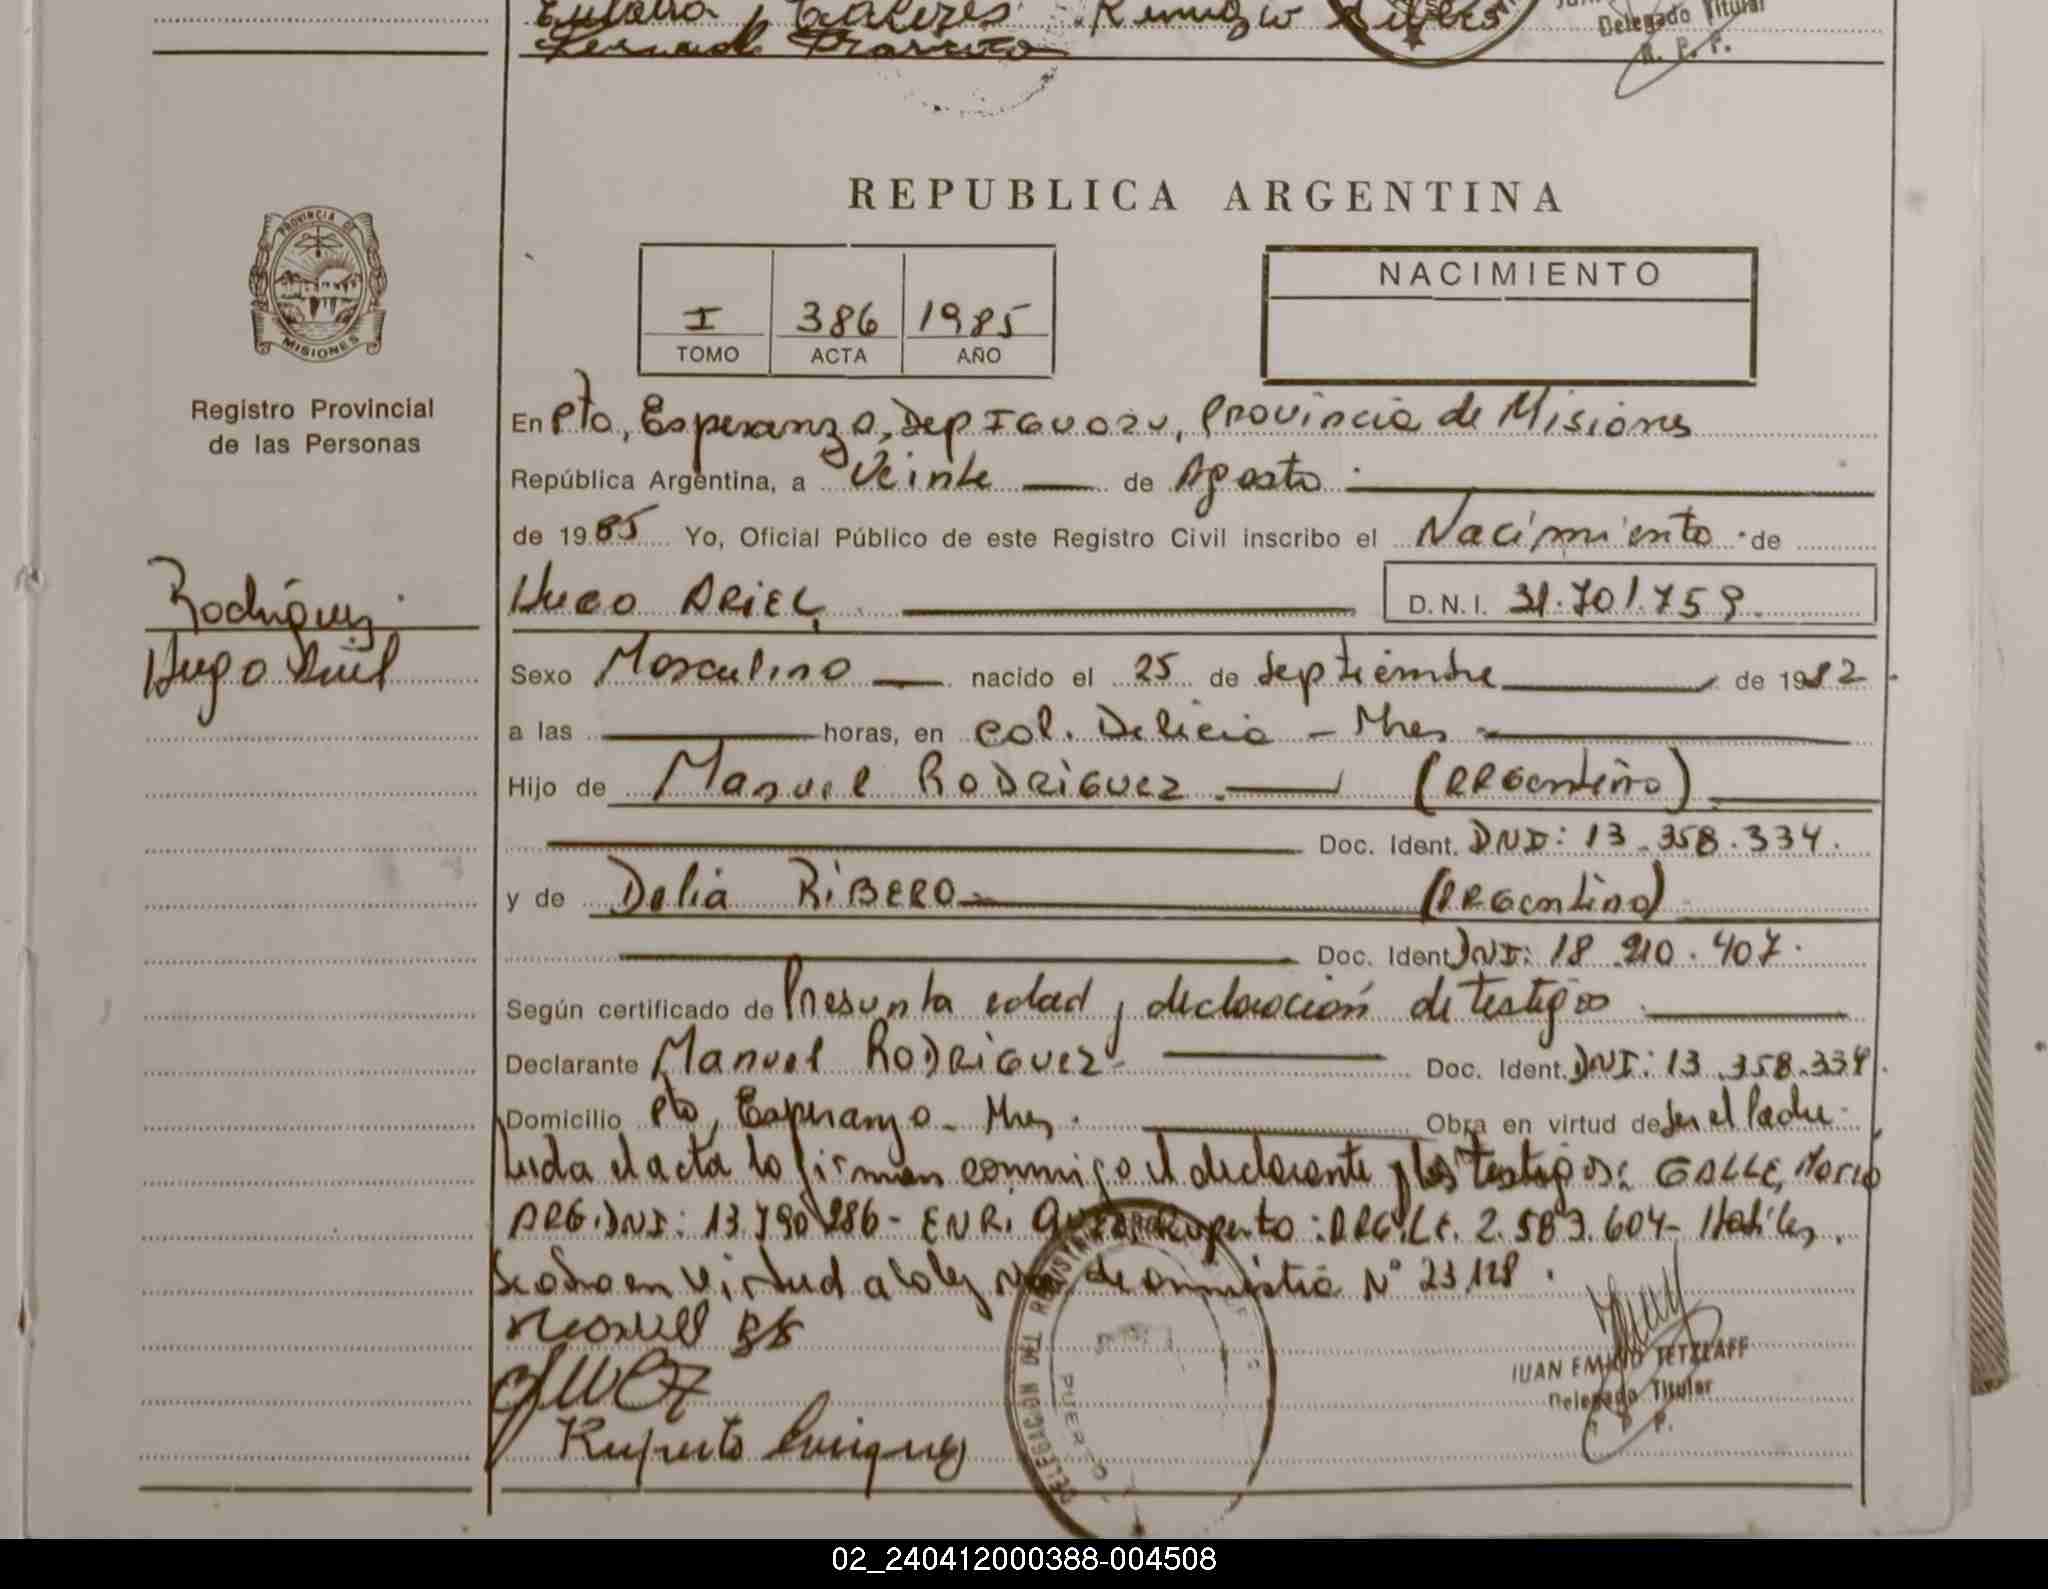 Delegado Titular
R. P. P.
REPUBLICA ARGENTINA
PROVINCIA DE
MISIONES
Registro Provincial
de las Personas
I 386 1985
TOMO ACTA AÑO
NACIMIENTO
En Pto, Esperanza, Dep IGUAZU, Provincia de Misiones
República Argentina, a Veinte de Agosto
de 1985 Yo, Oficial Público de este Registro Civil inscribo el Nacimiento de
Rodríguez
Hugo Ariel
HUGO ARIEL D.N.I. 31.701.759
Sexo Masculino nacido el 25 de Septiembre de 1982
a las horas, en Col. Delicia - Mnes
Hijo de Manuel RODRIGUEZ (ARGentino)
Doc. Ident. DNI: 13.358.334.
y de Delia RIBERO (ARGentina)
Doc. Ident. DNI: 18.210.407.
Según certificado de Presunta edad y declaración de testigos
Declarante Manuel RODRIGUEZ Doc. Ident. DNI: 13.358.334.
Domicilio Pto, Esperanza - Mnes. Obra en virtud de Ser el Padre
Leida el acta la firman conmigo el declarante y los testigos: GALLE, Mario
ARG. DNI: 13.790.286 - ENRIQUEZ, Ruperto: ARG. LE. 2.583.604 - Habiles.
Se obra en virtud a la ley de amnistia N° 23.128.
Manuel
Ruperto Enriquez
DELEGACION DEL REGISTRO
PUERTO
JUAN EMILIO TETZLAFF
Delegado Titular
R. P. P.
02_240412000388-004508